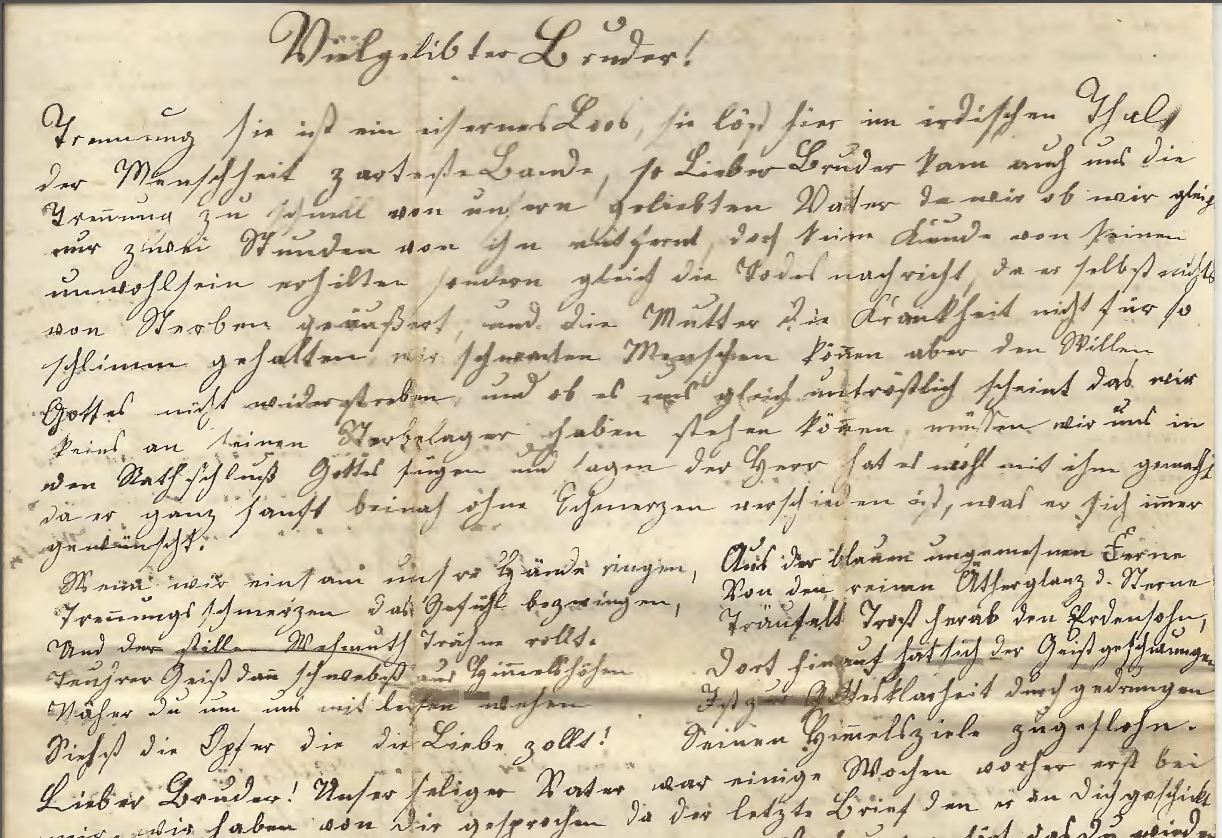 Vielgelibter Bruder!
Trennung sie ist ein eisernes Loos, sie lößt hier im irdischen Thale
der Menschheit zarteste Bande, so Lieber Bruder kam auch uns die
Trennung zu schnell von unsern geliebten Vater da wir ob wir gleich
nur zwei Stunden von ihn entfernt, doch keine Kunde von seinen
unwohlsein erhilten sondern gleich die Todes nachricht, da er selbst nichts
von Sterben geäußert, und die Mutter die Krankheit nicht für so
schlimm gehalten, wir schwachen Menschen können aber den Willen
Gottes nicht widerstreben, und ob es uns gleich untröstlich scheint das wir
keins an seinen Sterbelager haben stehen können, müssen wir uns in
den Rathschluß Gottes fügen und sagen der Herr hat es wohl mit ihm gemacht,
da er ganz sanft beinah ohne Schmerzen verschieden ist, was er sich immer
gewünscht.
Wenn wir einsam unsre Hände ringen,
Trennungsschmerzen das Gefühl bezwingen,
Und der stillen Wehmuth Trähne rollt.
Teuhrer Geist dann schwebst aus Himmelshöhen
Näher du um uns mit leisen wehen
Siehst die Opfer die die Liebe zollt!
Aus der blauen ungemesnen Ferne
Von den reinen Ätherglanz d. Sterne
Träufelt Trost herab den Erdensohn,
Dort hinauf hat sich der Geist geschwungen
Ist zur Gottesklarheit durchgedrungen
Seinen Himmelsziele zugeflohn.
Lieber Bruder! Unser seliger Vater war einige Wochen vorher erst bei
mir, wir haben von dir gesprochen da der letzte Brief den er an Dich geschickt